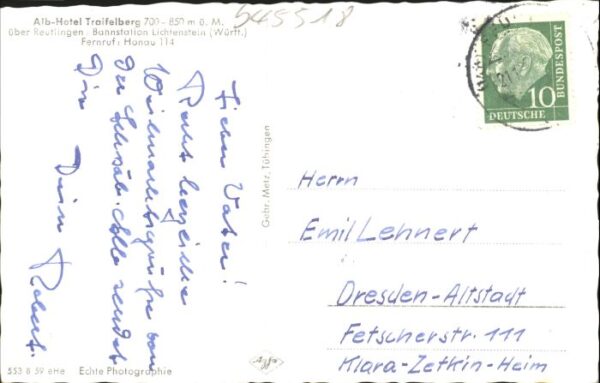 Alb-Hotel Traifelberg 700 - 850 m ü. M.
über Reutlingen · Bahnstation Lichtenstein (Württ.)
Fernruf: Honau 114
545518
Lieber Vater!
Recht herzliche
Weihnachtsgrüße von
der Schwäb. Alb sendet
Dir Dein Robert.
Gebr. Metz, Tübingen
10
DEUTSCHE
BUNDESPOST
Herrn
Emil Lehnert
Dresden-Altstadt
Fetscherstr. 111
Klara-Zetkin-Heim
553 8 59 eHe Echte Photographie